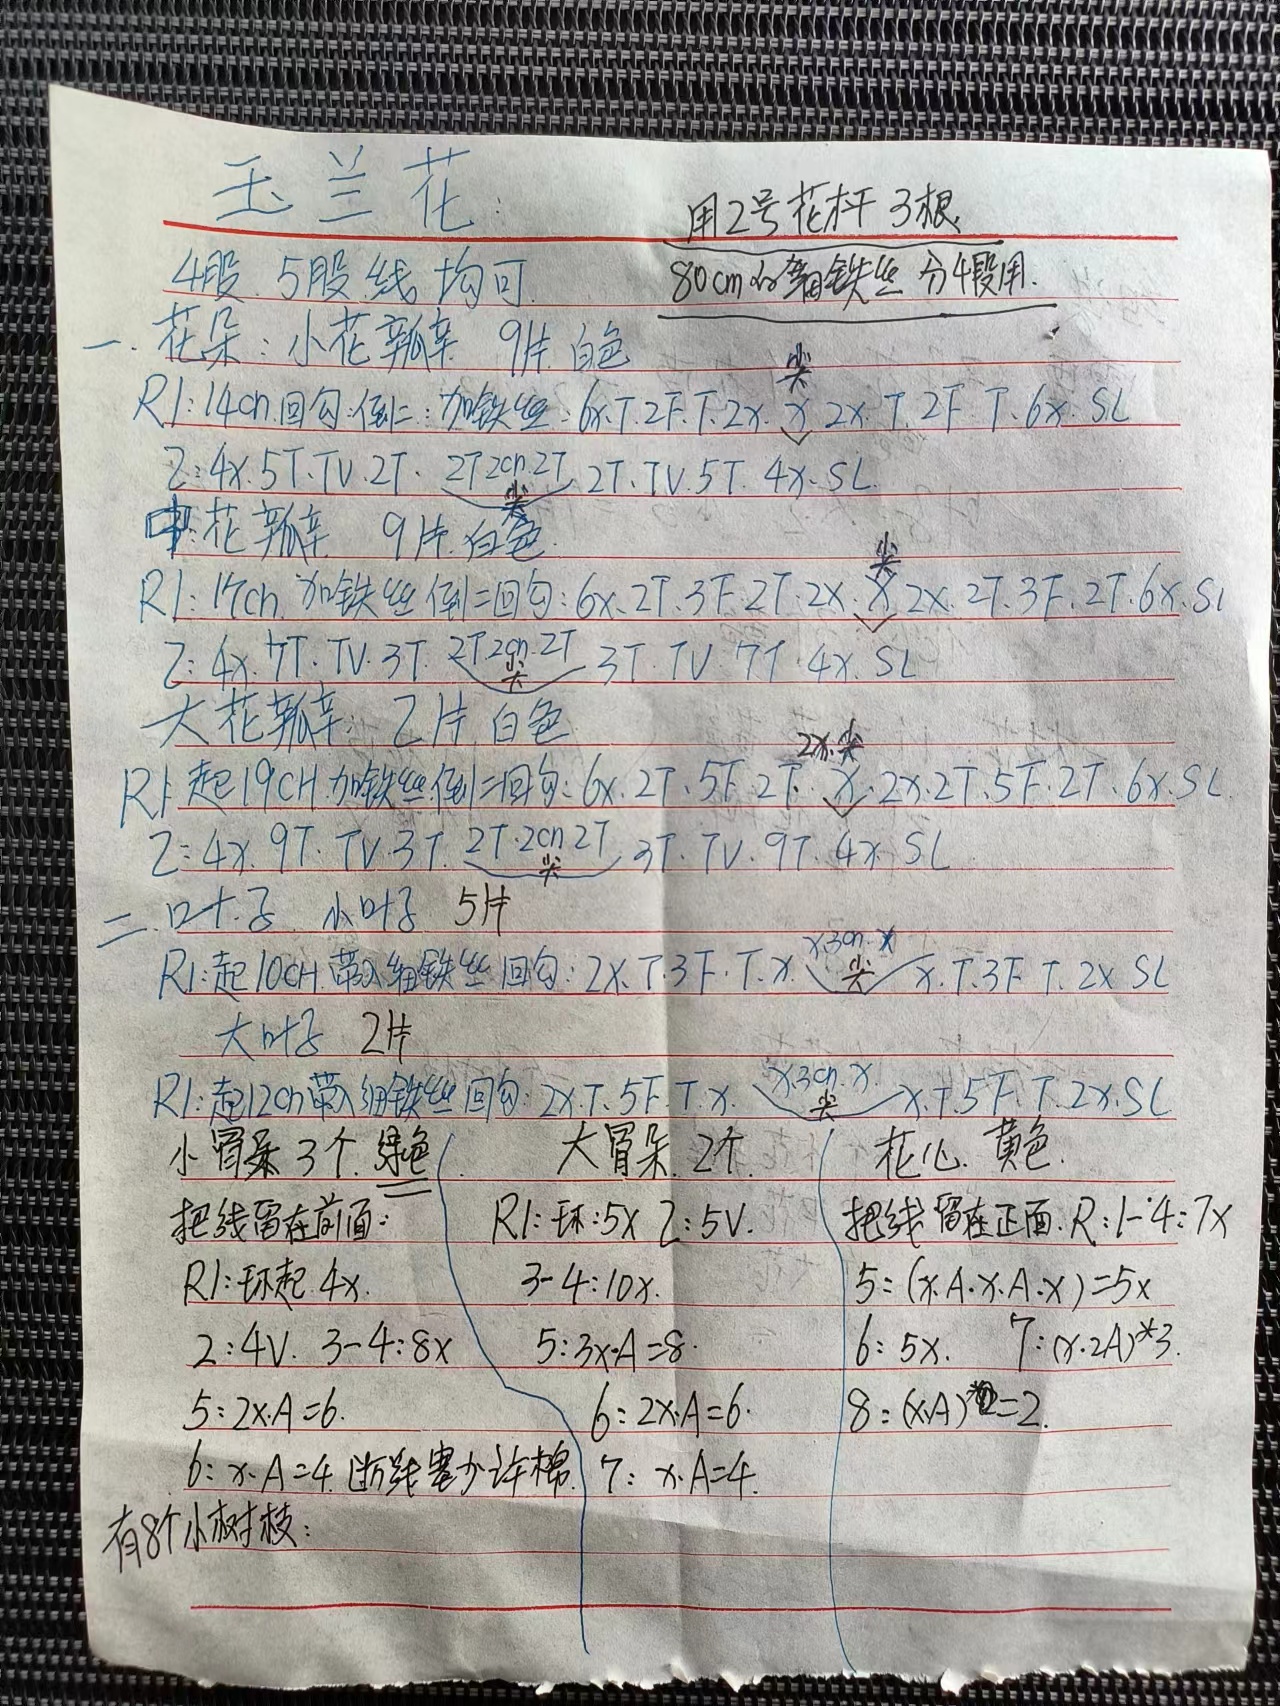 玉兰花:
用2号花杆 3根
80cm的细铁丝 分4段用.
4股.5股线 均可
一. 花朵: 小花瓣 9片 白色
尖
R1:14cn.回勾.倒二: 加铁丝: 6x.T.2F.T.2x. x 2x. T.2F T.6x. SL
2:4x.5T.TV.2T. 2T 2cn.2T 2T.TV.5T. 4x.SL.
尖
中花瓣 9片.白色.
尖
R1:17cn.加铁丝 倒二回勾:6x.2T.3F.2T.2x.x 2x.2T.3F.2T.6x.SL
2:4x.7T.TV.3T. 2T 2cn.2T 3T.TV 7T.4x.SL
尖
大花瓣: 2片 白色
2x.尖
R1:起19CH.加铁丝.倒二回勾: 6x.2T.5F.2T. x.2x.2T.5F.2T.6x.SL
2:4x.9T.TV.3T. 2T.2cn 2T 3T.TV.9T.4x.SL
尖
二.叶子 小叶子 5片
x.3cn.x
R1:起10CH.带入细铁丝 回勾: 2x.T.3F.T.x. 尖 x.T.3F T.2x SL
大叶子 2片
x.3cn.x.
R1:起12cn带入细铁丝回勾: 2x.T.5F.T.x. 尖 x.T.5F.T.2x.SL
小骨朵 3个.绿色
把线留在前面:
R1:环起.4x.
2:4V. 3-4:8x
5:2x.A=6.
6:x.A=4.断线塞少许棉.
大骨朵 2个
R1:环:5x 2:5V.
3-4:10x.
5:3x.A=8.
6:2x.A=6.
7: x.A=4.
花心.黄色.
把线留在正面.R:1-4:7x
5:(x.A.x.A.x)=5x
6: 5x. 7:(x.2A)*3.
8:(x.A) =2.
有8个小树枝: